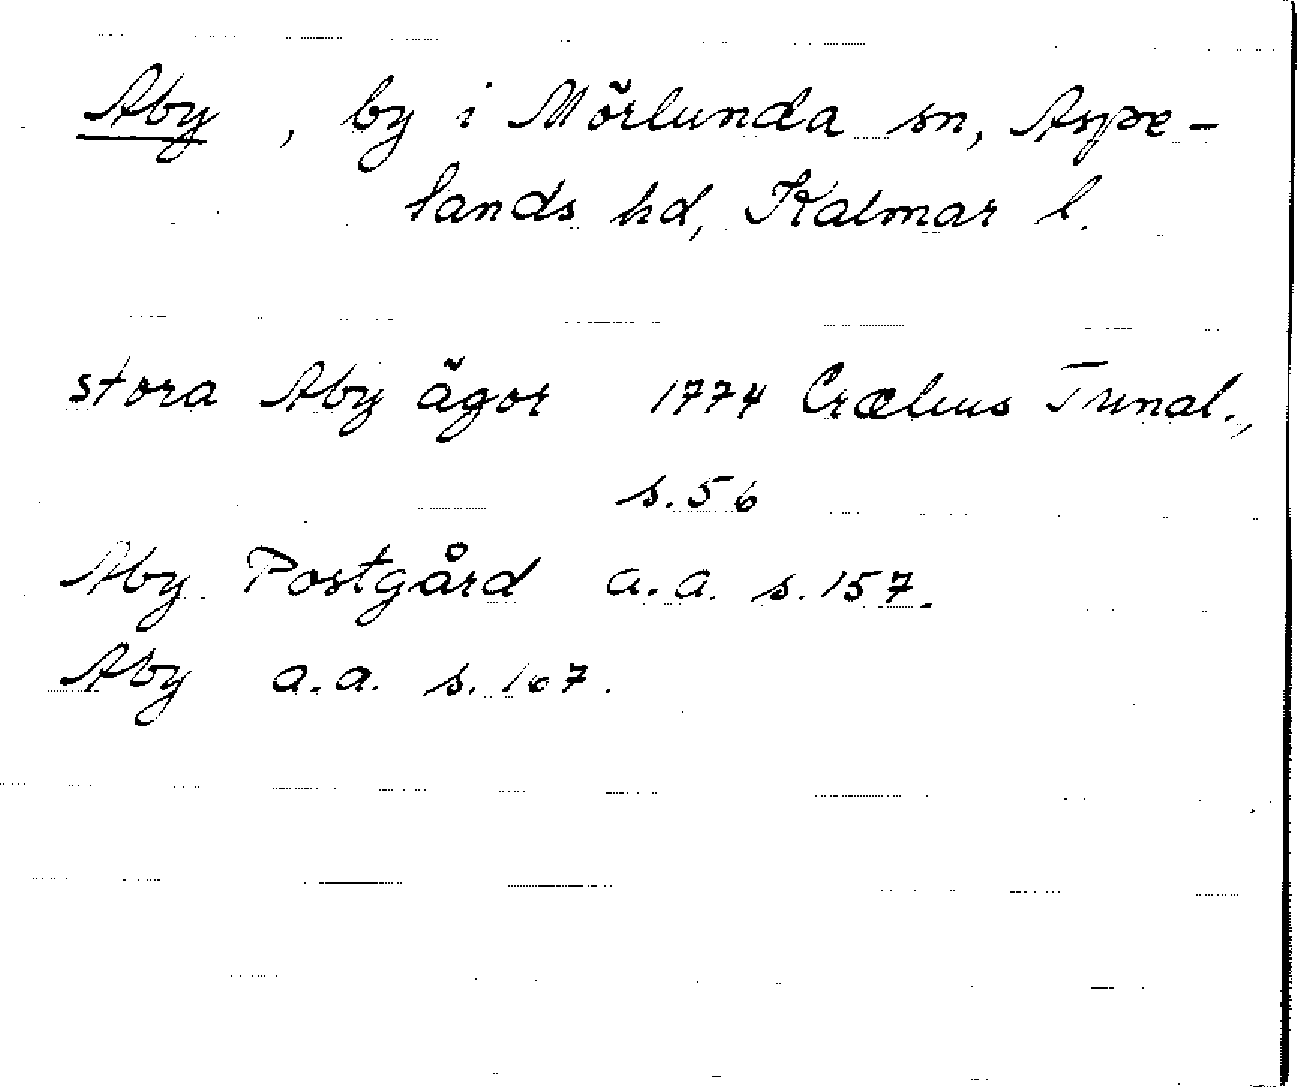 Aby, by i Mörlunda sn, Aspe-
lands hd, Kalmar l.
stora Aby ägor 1774 Crælius Tunal.,
s. 56
Aby Postgård a.a. s. 157.
Aby a.a. s. 167.